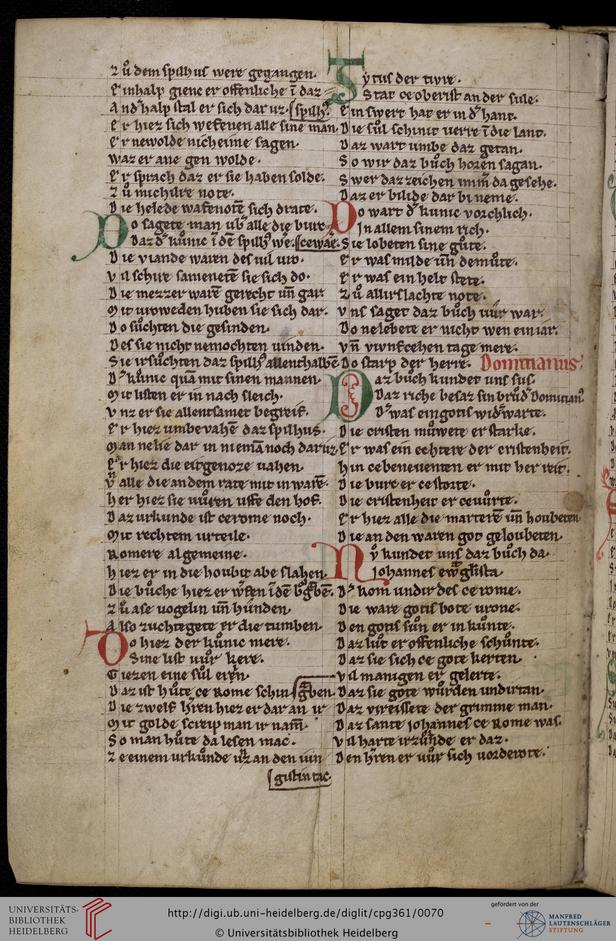 Zů dem spilhus were gegangen.
Er inhalp gienc er offenliche ī daz
And halp stal er sich dar uz. spilhꝰ
Er hiez sich wefenen alle sine man
Er newolde nicheime sagen.
Waz er ane gen wolde.
Er sprach daz er sie haben solde.
Zů michilre note.
Die helede wafenotē sich drate.
Do sagete man ubꝰ alle die burc
Daz dꝰ kunic ī dē spilhꝰ we. cewaꝛe.
Die viande waren des vil vro.
Vil schire samenetē sie sich do.
Die mezzer warē gerecht uñ gar
Mit vroweden huben sie sich dar.
Do sůchten die gesinden.
Des sie nicht nemochten vinden.
Sie irsůchten daz spilhꝰ allenthalbē
Dꝰ kunic quā mit sinen mannen
Mit listen er in nach sleich.
Vnz er sie allentsamet begreif.
Er hiez umbe vahē daz spilhus.
Man ne lie dar in niemā noch dar uz.
Er hiez die eitgenoze vahen
Vñ alle die an dem rate mit in warē.
Her hiez sie vůren uffe den hof.
Daz urkunde ist ce rome noch.
Mit rechtem urteile.
Romere algemeine.
Hiez er in die houbit abe slahen.
Die buche hiez er ī dē
Zů ase vogelin uñ hunden
Also zuchtegete er die tumben.
Do hiez der kůnic mere.
Sine list vůr kere.
Giezen eine sůl erin.
Daz ist hůte ce Rome schin. gben.
Die zwelf hꝰren hiez er dar an ir
Mit golde screip man ir nam.
So man hůte da lesen mac.
Ze einem urkunde uꝛ an den iun
gistin tac.
Tytus der tivre.
Stat ce oberist an der sule.
Ein swert hat er in dꝰ hant.
Die sůl schinit verre ī die lant.
Daz wart umbe daz getan.
So wir daz bůch horen sagan.
Swer daz zeichen imm̄ da gesehe.
Daz er bilide dar bi neme.
Do wart dꝰ kunic vorchlich.
In allem sinem rich.
Sie lobeten sine gůte.
Er was milde uñ demůte.
Er was ein helt stete.
Zů allir slachte note.
Vns saget daz bůch vůr war.
Do ne lebete er nicht wen ein iar.
Vñ vivnfcehen tage mere.
Do starp der herre. Domicianus.
Daz bůch kundet uns sus.
Daz riche besaz sin brůdꝰ Domiciañ.
Dꝰ was ein gotis widꝰwarte.
Die cristen můwete er starke.
Er was ein echtere der cristenheit.
Hin ce beneventen er mit her reit.
Die burc er cestorte.
Die cristenheit er cevůrte.
Er hiez alle die marterē uñ houbeten
Die an den waren got geloubeten.
Nv kundet uns daz bůch da.
Johannes ewāglista
Dꝰ kom undir des ce rome.
Die ware gotis bote vrone.
Den gotis sůn er in kůnte.
Daz lůt er offenliche schůnte.
Daz sie sich ce gote kerten
Vil manigen er gelerte.
Daz sie gote wůrden undirtan.
Daz vreissete der grimme man.
Daz sante Johannes ce Rome was.
Vil harte irzůnde er daz.
Den hꝰren er vůr sich vorderote.
UNIVERSITÄTS-
BIBLIOTHEK
HEIDELBERG
http://digi.ub.uni-heidelberg.de/diglit/cpg361/0070
© Universitätsbibliothek Heidelberg
gefördert von der
MANFRED
LAUTENSCHLÄGER
STIFTUNG